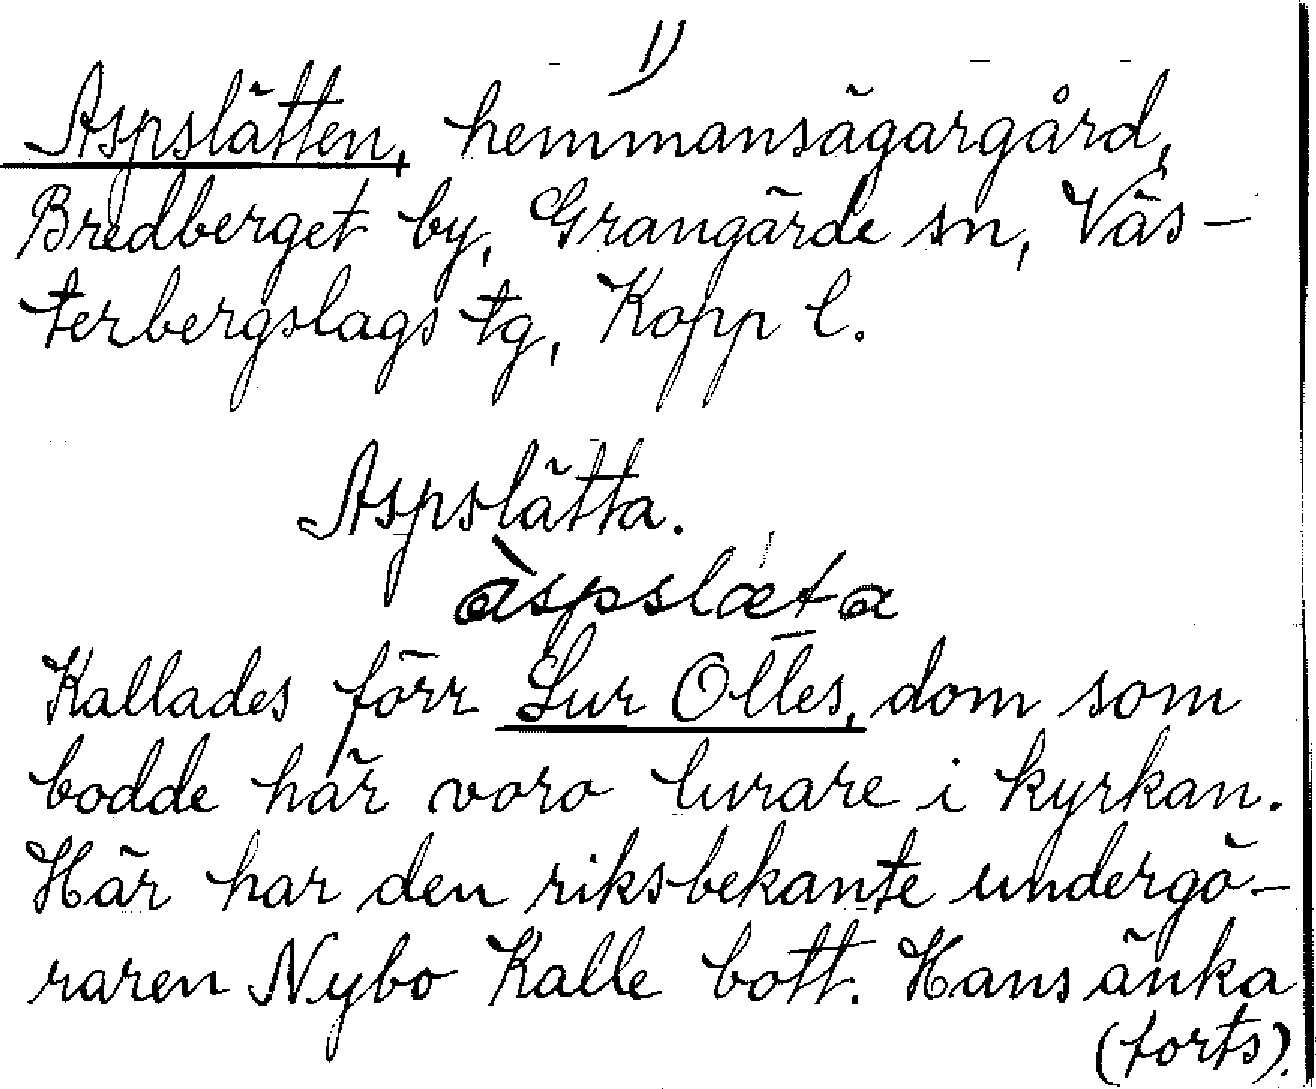 1)
Aspslätten, hemmansägargård,
Bredberget by, Grangärde sn, Väs-
terbergslags tg, Kopp l.
Aspslätta.
àspslæta
Kallades förr Lur Olles, dom som
bodde här voro lurare i kyrkan.
Här har den riksbekante undergö-
raren Nybo Kalle bott. Hans änka
(forts).